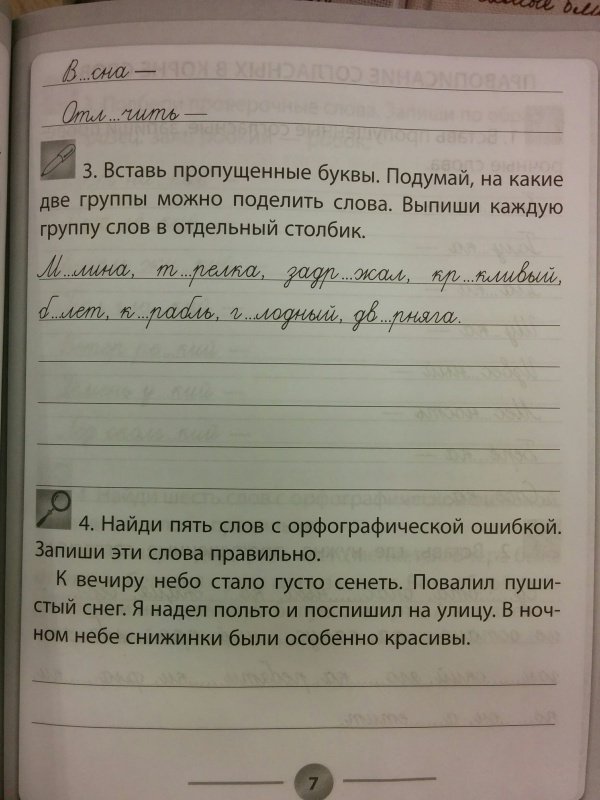 В...сна —
Отл...чить —
3. Вставь пропущенные буквы. Подумай, на какие
две группы можно поделить слова. Выпиши каждую
группу слов в отдельный столбик.
М...лина, т...релка, задр...жал, кр...кливый,
б...лет, к...рабль, г...лодный, дв...рняга.
4. Найди пять слов с орфографической ошибкой.
Запиши эти слова правильно.
К вечиру небо стало густо сенеть. Повалил пуши-
стый снег. Я надел польто и поспишил на улицу. В ноч-
ном небе снижинки были особенно красивы.
7